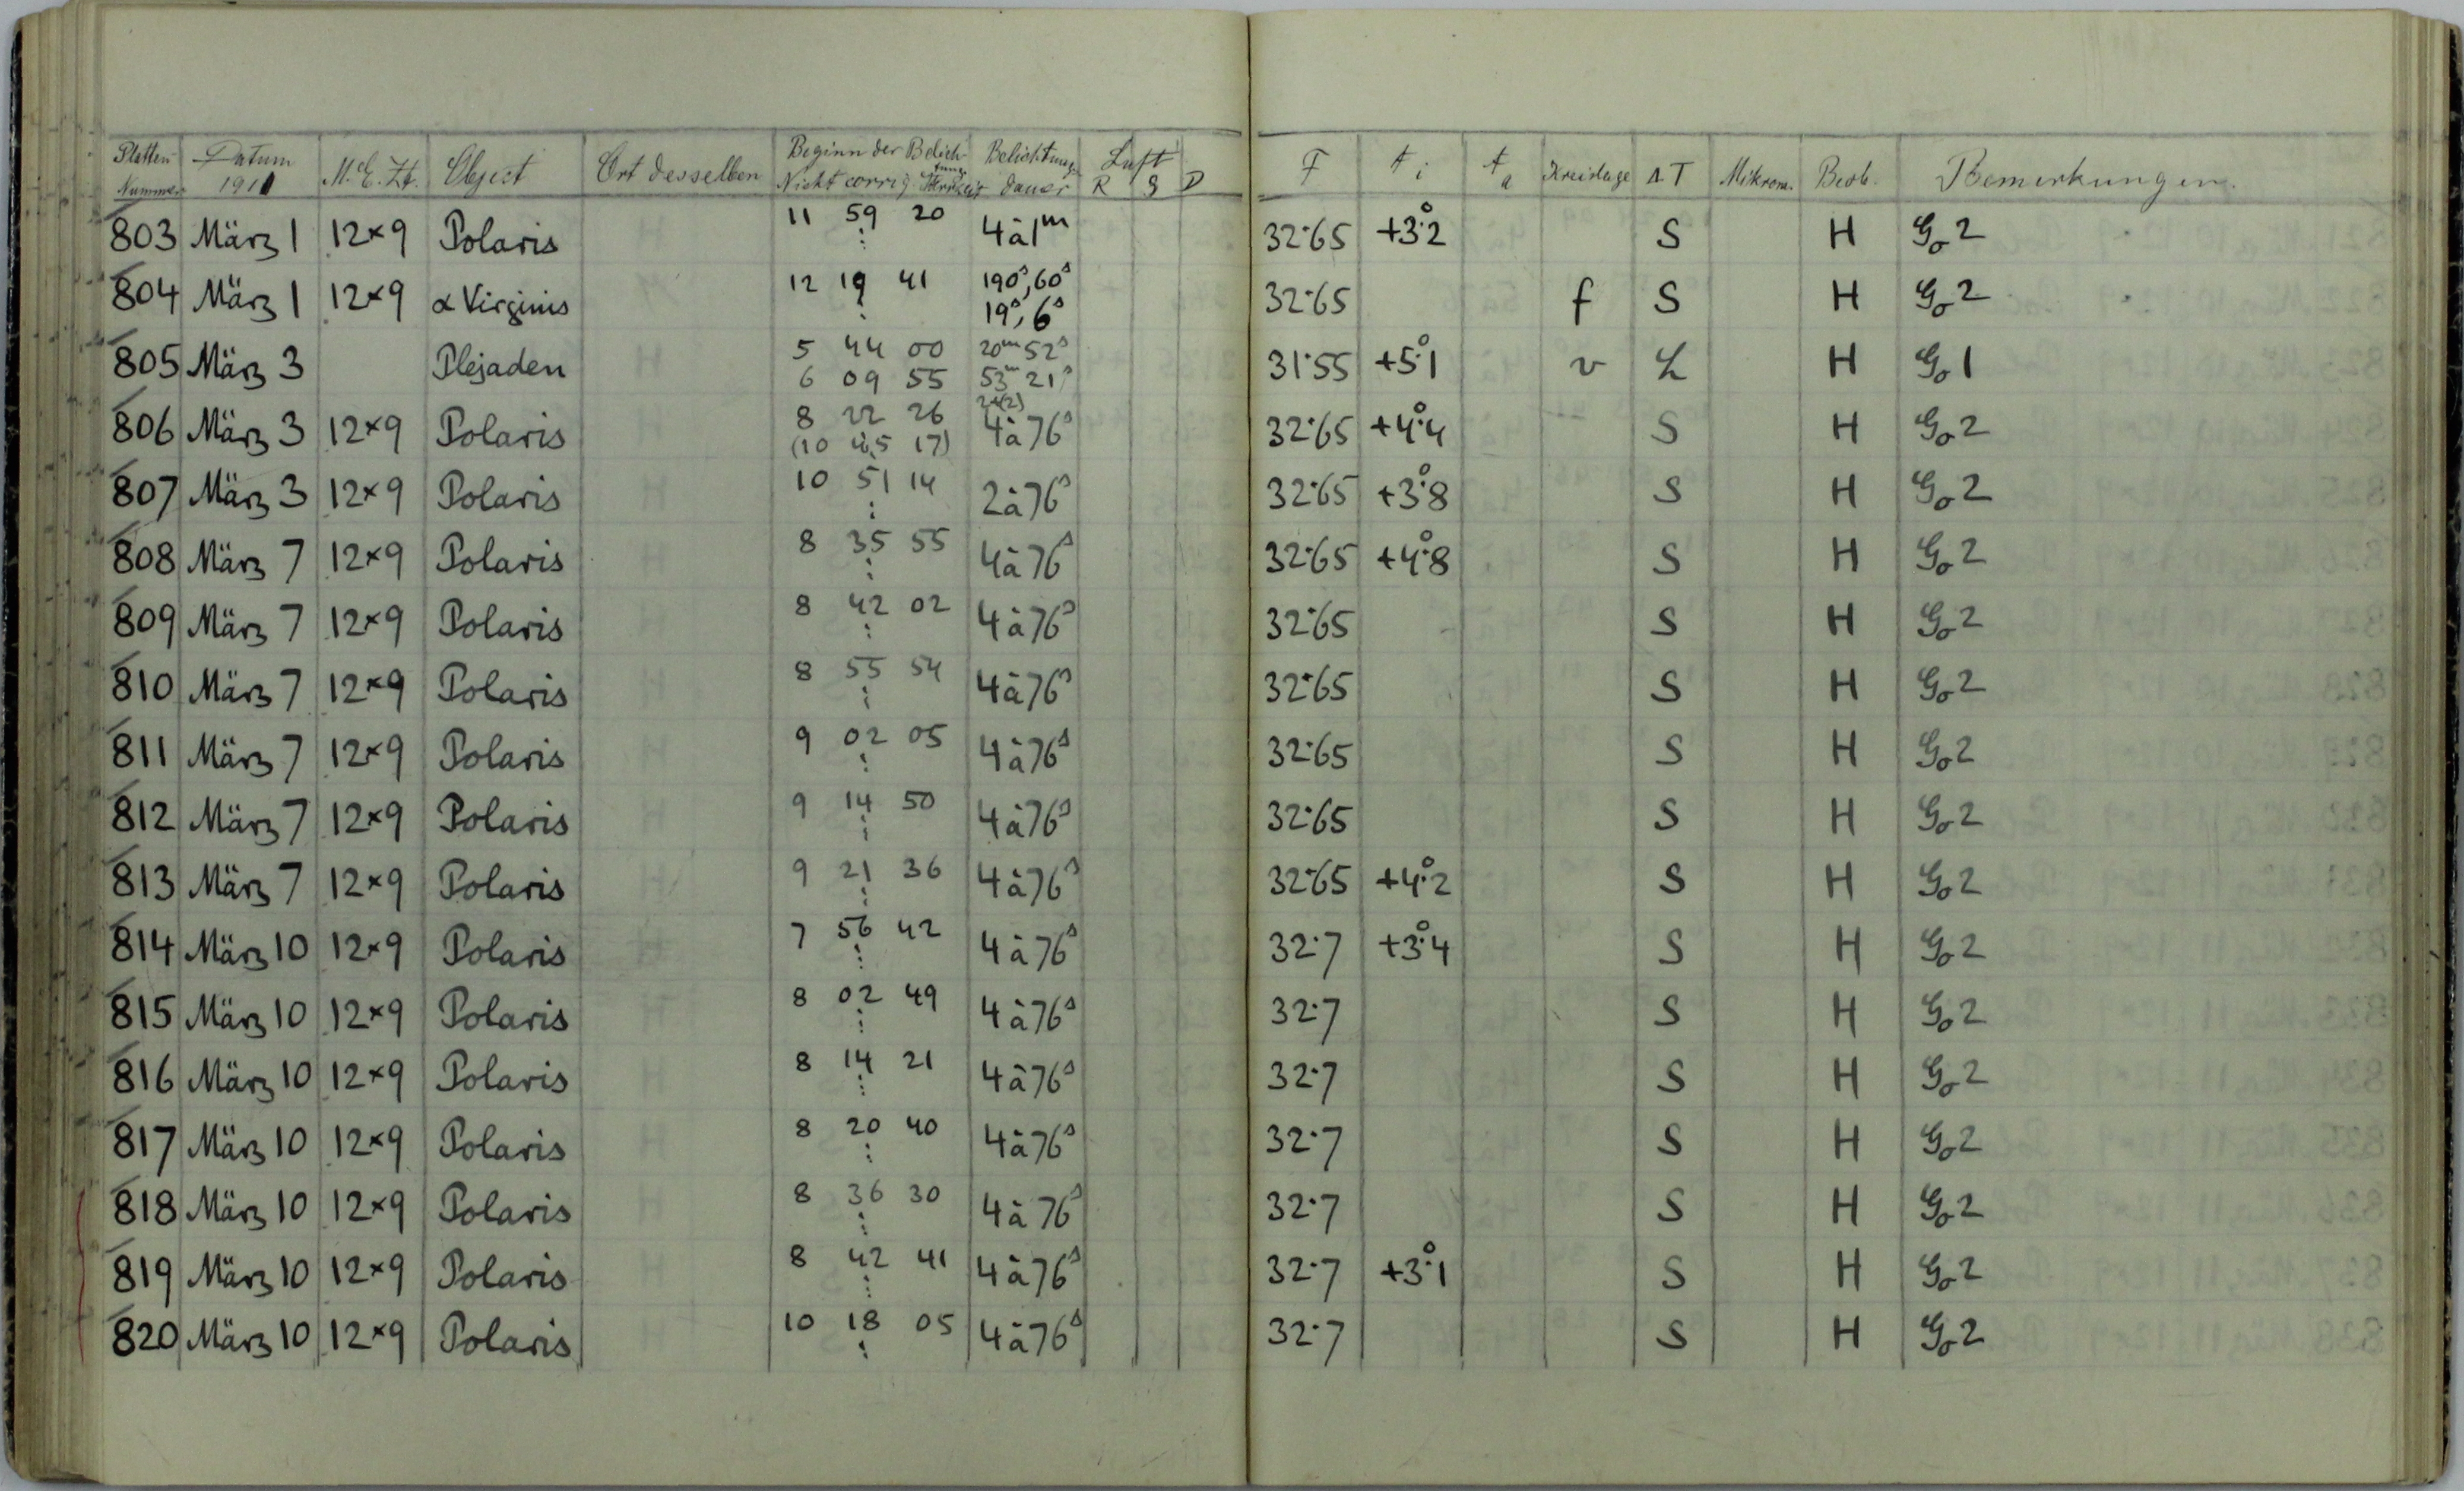 Platten Nummer Datum 1911 M.E.Zt. Object Ort desselben Beginn der Belichtung Nicht corrig. Belichtungsdauer Luft R S D F t i t a Kreislage ΔT Mikrom. Beob. Bemerkungen.
803 März 1 12×9 Polaris 11 59 20 ⋮ 4 à 1m 32·65 +3°.2 S H Go 2
804 März 1 12×9 α Virginis 12 19 41 ⋮ 190s, 60s 19s, 6s 32·65 f S H Go 2
805 März 3 Plejaden 5 44 00 20m 52s 31·55 +5°.1 v L H Go 1
6 09 55 53m 21s
806 März 3 12×9 Polaris 8 22 26 4 à 76s 32·65 +4°.4 S H Go 2
(10 45 17)
807 März 3 12×9 Polaris 10 51 14 ⋮ 2 à 76s 32·65 +3°.8 S H Go 2
808 März 7 12×9 Polaris 8 35 55 ⋮ 4 à 76s 32·65 +4°.8 S H Go 2
809 März 7 12×9 Polaris 8 42 02 ⋮ 4 à 76s 32·65 S H Go 2
810 März 7 12×9 Polaris 8 55 54 ⋮ 4 à 76s 32·65 S H Go 2
811 März 7 12×9 Polaris 9 02 05 ⋮ 4 à 76s 32·65 S H Go 2
812 März 7 12×9 Polaris 9 14 50 ⋮ 4 à 76s 32·65 S H Go 2
813 März 7 12×9 Polaris 9 21 36 ⋮ 4 à 76s 32·65 +4°.2 S H Go 2
814 März 10 12×9 Polaris 7 56 42 ⋮ 4 à 76s 32·7 +3°.4 S H Go 2
815 März 10 12×9 Polaris 8 02 49 ⋮ 4 à 76s 32·7 S H Go 2
816 März 10 12×9 Polaris 8 14 21 ⋮ 4 à 76s 32·7 S H Go 2
817 März 10 12×9 Polaris 8 20 40 ⋮ 4 à 76s 32·7 S H Go 2
818 März 10 12×9 Polaris 8 36 30 ⋮ 4 à 76s 32·7 S H Go 2
819 März 10 12×9 Polaris 8 42 41 ⋮ 4 à 76s 32·7 +3°.1 S H Go 2
820 März 10 12×9 Polaris 10 18 05 ⋮ 4 à 76s 32·7 S H Go 2